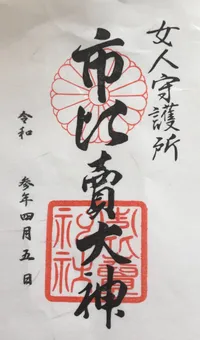 女人守護所
市比賣大神
令和 参年四月五日